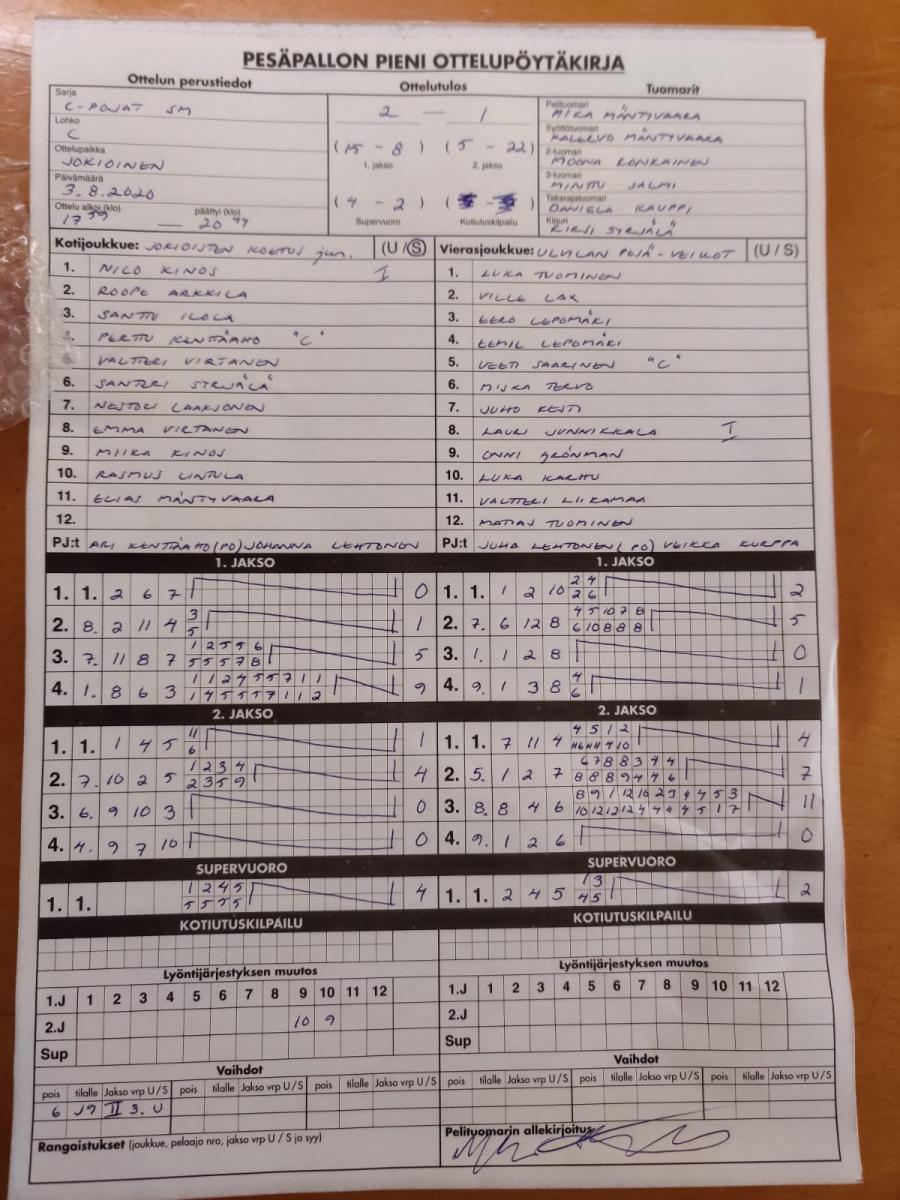 PESÄPALLON PIENI OTTELUPÖYTÄKIRJA
Ottelun perustiedot Ottelutulos Tuomarit
Sarja
C-POJAT SM
Lohko
C
Ottelupaikka
JOKIOINEN
Päivämäärä
3.8.2020
Ottelu alkoi (klo) päättyi (klo)
17 59 — 20 44
2 — 1
(15 - 8) (5 - 22)
1. jakso 2. jakso
(4 - 2)
Supervuoro Kotiutuskilpailu
Pelituomari
MIKA MÄNTYVAARA
Syöttötuomari
KALERVO MÄNTYVAARA
2-tuomari
MOONA RONKAINEN
3-tuomari
MINTTU SALMI
Takarajatuomari
DANIELA KAUPPI
Kirjuri
KIRSI SYRJÄLÄ
Kotijoukkue: JOKIOISTEN KOETUS jun. (U / S)
1. NICO KINOS I
2. ROOPE ARKKILA
3. SANTTU ILOLA
PERTTU KENTTÄAHO "C"
VALTTERI VIRTANEN
6. SANTERI SYRJÄLÄ
7. NESTORI LAAKSONEN
8. EMMA VIRTANEN
9. MIIKA KINOS
10. RASMUS LINTULA
11. ELIAS MÄNTYVAARA
12.
PJ:t ARI KENTTÄAHO (PO) JOHANNA LEHTONEN
Vierasjoukkue: ULVILAN PESÄ-VEIKOT (U / S)
1. LUKA TUOMINEN
2. VILLE LAK
3. EERO LEPOMÄKI
4. EEMIL LEPOMÄKI
5. VEETI SAARINEN "C"
6. MISKA TERVO
7. JUHO KESTI
8. LAURI JUNNIKKALA I
9. ONNI GRÖNMAN
10. LUKA KARHU
11. VALTTERI LIIKAMAA
12. MATIAS TUOMINEN
PJ:t JUHA LEHTONEN (PO) VEIKKA KURPPA
1. JAKSO
1. 1. 2 6 7 0
2. 8. 2 11 4 3 1
5
3. 7. 11 8 7 1 2 5 5 6 5
5 5 5 7 8
4. 1. 8 6 3 1 1 2 4 5 5 7 1 1 9
1 4 5 5 5 7 1 1 2
2. JAKSO
1. 1. 1 4 5 11 1
6
2. 7. 10 2 5 1 2 3 4 4
2 3 5 9
3. 6. 9 10 3 0
4. 4. 9 7 10 0
SUPERVUORO
1. 1. 1 2 4 5 4
5 5 5 5
KOTIUTUSKILPAILU
Lyöntijärjestyksen muutos
1.J 1 2 3 4 5 6 7 8 9 10 11 12
2.J 10 9
Sup
Vaihdot
pois tilalle Jakso vrp U / S pois tilalle Jakso vrp U / S pois tilalle Jakso vrp U / S
6 J9 II 3. U
Rangaistukset (joukkue, pelaaja nro, jakso vrp U / S ja syy)
1. JAKSO
1. 1. 1 2 10 2 4 2
2 6
2. 7. 6 12 8 4 5 10 7 8 5
6 10 8 8 8
3. 1. 1 2 8 0
4. 9. 1 3 8 4 1
6
2. JAKSO
1. 1. 7 11 4 4 5 1 2 4
4 10
2. 5. 1 2 7 6 7 8 8 3 4 4 7
8 8 8 9 4 4 6
3. 8. 8 4 6 8 9 1 12 10 2 3 4 4 5 3 11
10 12 12 12 4 4 4 4 5 1 7
4. 9. 1 2 6 0
SUPERVUORO
1. 1. 2 4 5 1 3 2
4 5
KOTIUTUSKILPAILU
Lyöntijärjestyksen muutos
1.J 1 2 3 4 5 6 7 8 9 10 11 12
2.J
Sup
Vaihdot
pois tilalle Jakso vrp U / S pois tilalle Jakso vrp U / S pois tilalle Jakso vrp U / S
Pelituomarin allekirjoitus